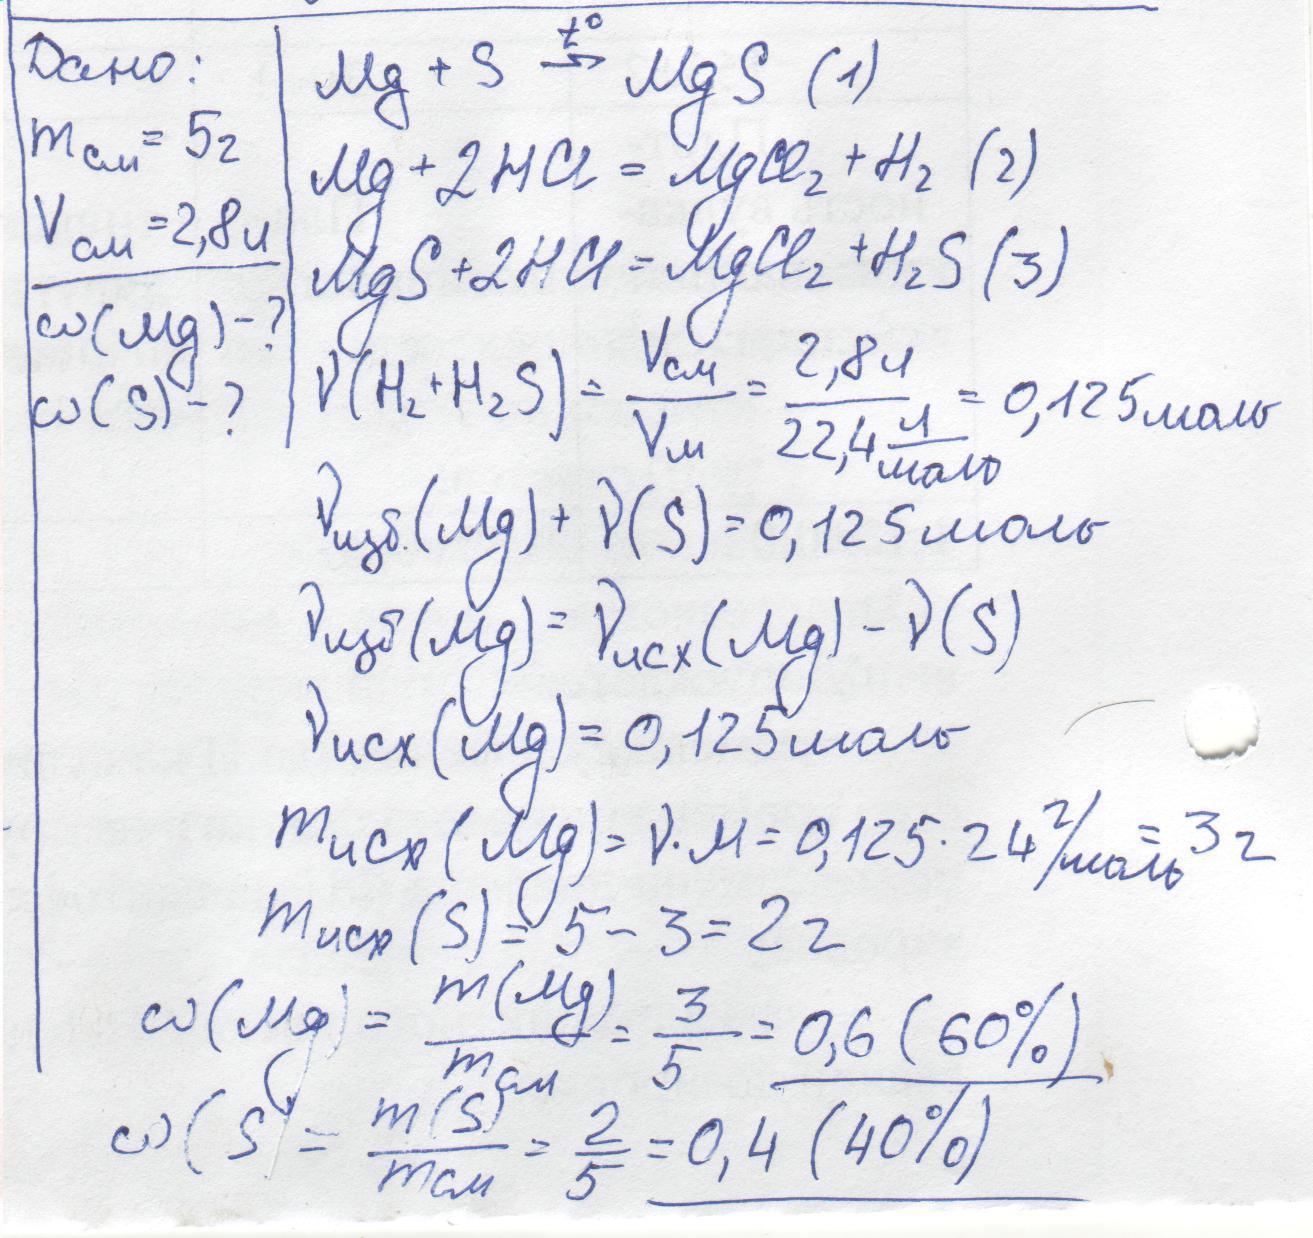 Дано:
m см = 5г
V см = 2,8л
ω(Mg) - ?
ω(S) - ?
Mg + S t° → MgS (1)
Mg + 2HCl = MgCl₂ + H₂ (2)
MgS + 2HCl = MgCl₂ + H₂S (3)
ν(H₂ + H₂S) = Vсм / Vм = 2,8л / 22,4 л/моль = 0,125 моль
νизб.(Mg) + ν(S) = 0,125 моль
νизб(Mg) = νисх(Mg) - ν(S)
νисх(Mg) = 0,125 моль
mисх(Mg) = ν·M = 0,125·24 г/моль = 3г
mисх(S) = 5 - 3 = 2г
ω(Mg) = m(Mg) / mсм = 3/5 = 0,6 (60%)
ω(S) = m(S) / mсм = 2/5 = 0,4 (40%)